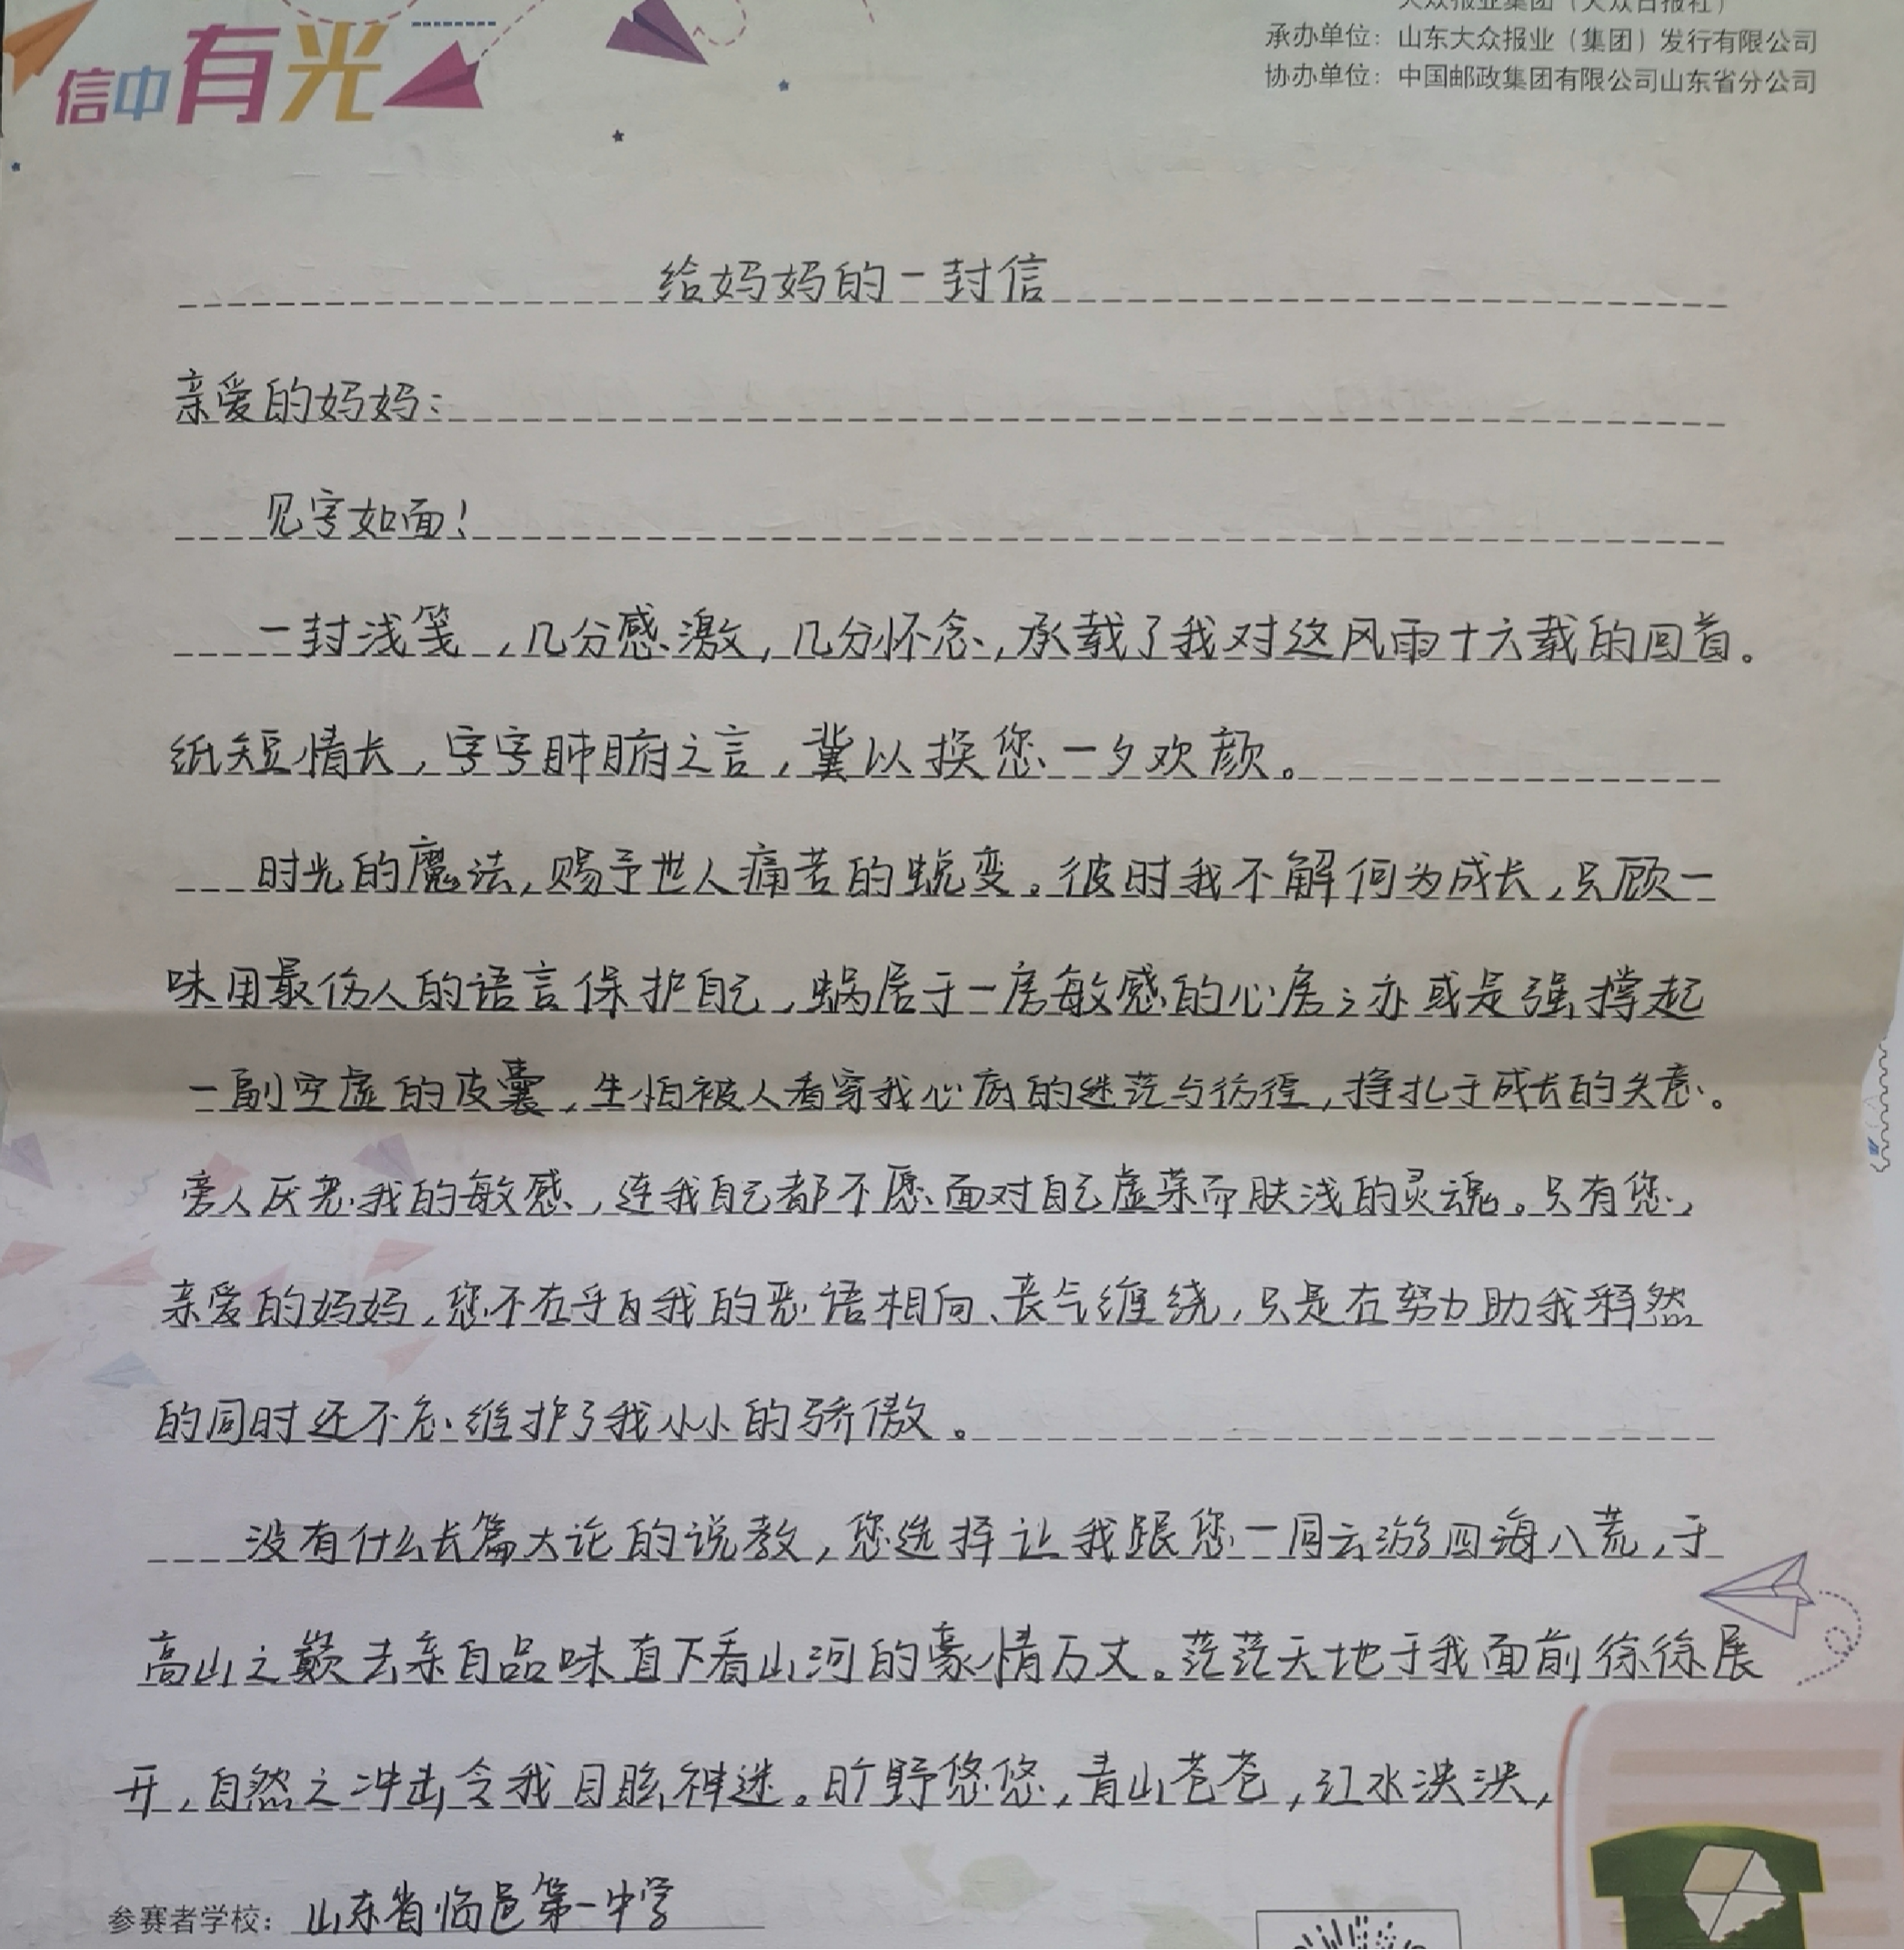 大众报业集团（大众日报社）
信中有光
承办单位：山东大众报业（集团）发行有限公司
协办单位：中国邮政集团有限公司山东省分公司
给妈妈的一封信
亲爱的妈妈：
见字如面！
一封浅笺，几分感激，几分怀念，承载了我对这风雨十六载的回首。
纸短情长，字字肺腑之言，冀以换您一夕欢颜。
时光的魔法，赐予世人痛苦的蜕变。彼时我不解何为成长，只顾一
味用最伤人的语言保护自己，蜗居于一房敏感的心房；亦或是强撑起
一副空虚的皮囊，生怕被人看穿我心底的迷茫与彷徨，挣扎于成长的失意。
旁人厌恶我的敏感，连我自己都不愿面对自己虚荣而肤浅的灵魂。只有您，
亲爱的妈妈，您不在乎自我的恶语相向、丧气缠绕，只是在努力助我释然
的同时还不忘维护了我小小的骄傲。
没有什么长篇大论的说教，您选择让我跟您一同云游四海八荒，于
高山之巅去亲自品味直下看山河的豪情万丈。茫茫天地于我面前徐徐展
开，自然之冲击令我目眩神迷。旷野悠悠，青山苍苍，江水泱泱，
参赛者学校：山东省临邑第一中学